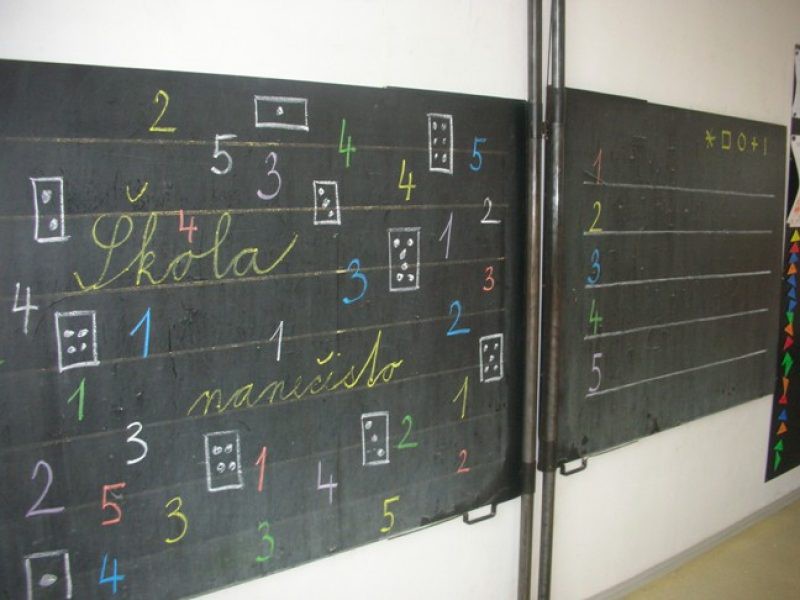 2 4 5
5 3 4
4 1 2
Škola
3 3
4 1 1 2
nanečisto
1 1
3 2
2 1 4 2
5 3 5
4 3
1
2
3
4
5